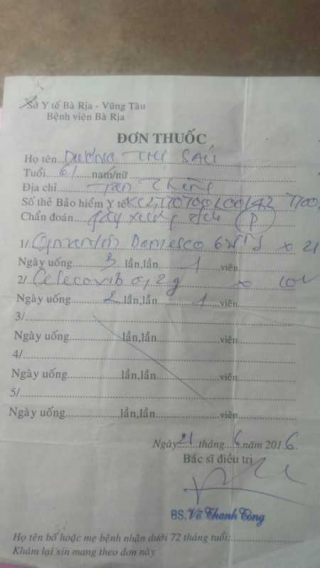 Sở Y tế Bà Rịa - Vũng Tàu
Bệnh viện Bà Rịa
ĐƠN THUỐC
Họ tên DƯƠNG THỊ SÁU
Tuổi 61 nam/nữ
Địa chỉ
Số thẻ Bảo hiểm Y tế
Chẩn đoán gãy xương P
1/ Domesco x 21
Ngày uống 3 lần,lần 1 viên
2/ Celecoxib 0,2g x 10v
Ngày uống 2 lần,lần 1 viên
3/
Ngày uống lần,lần viên
4/
Ngày uống lần,lần viên
5/
Ngày uống lần,lần viên
Ngày 21 tháng 6 năm 2016
Bác sĩ điều trị
BS. Võ Thanh Công
Họ tên bố hoặc mẹ bệnh nhân dưới 72 tháng tuổi:
Khám lại xin mang theo đơn này